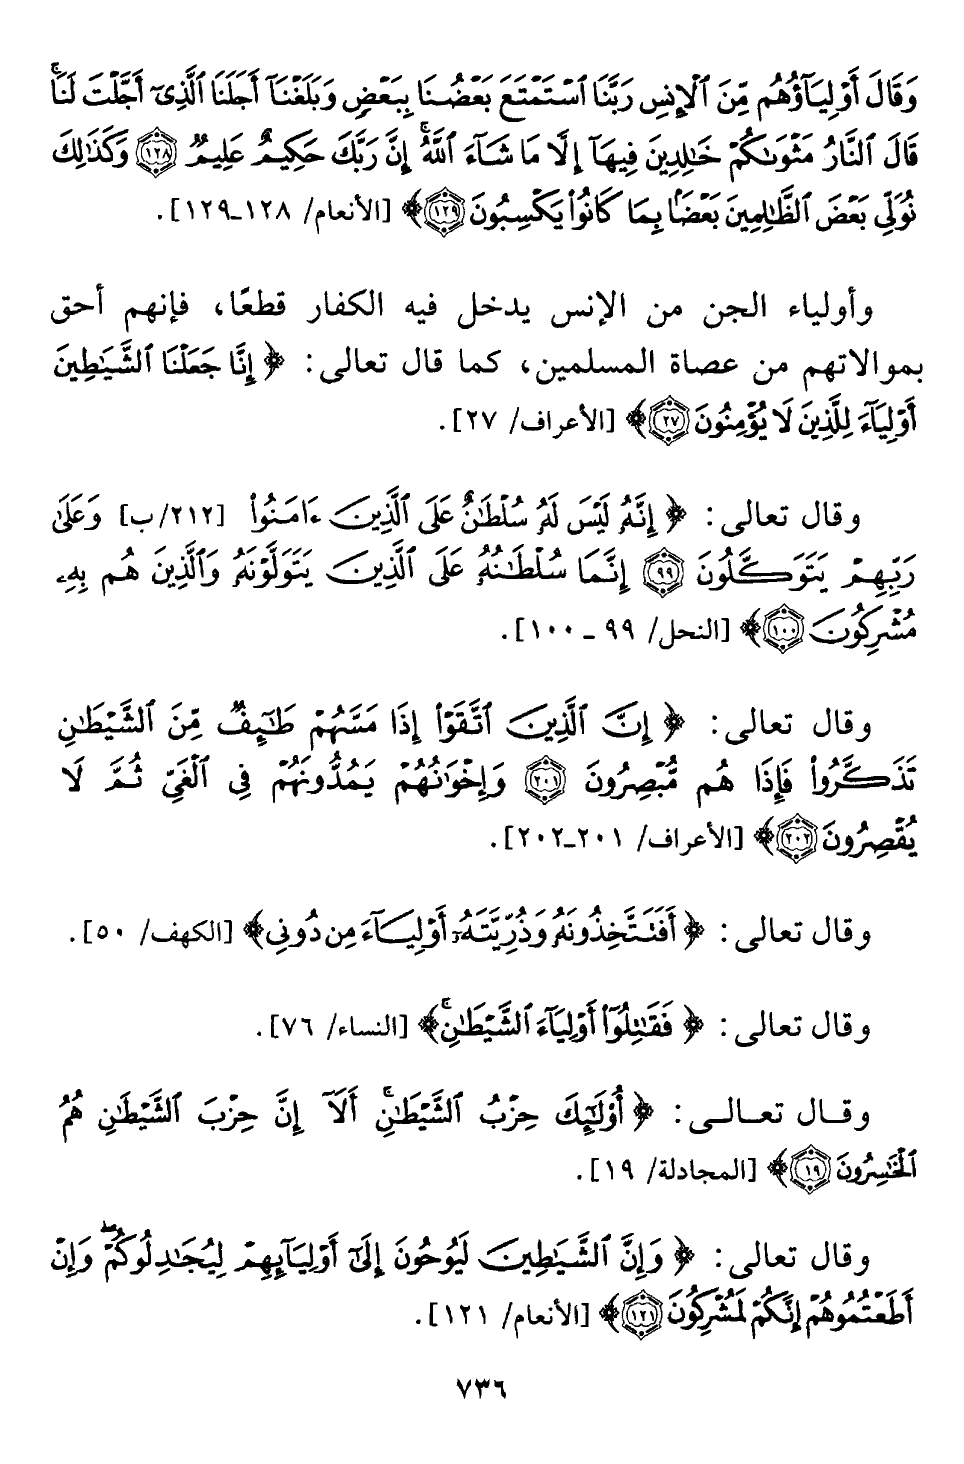 وَقَالَ أَوْلِيَآؤُهُم مِّنَ ٱلْإِنسِ رَبَّنَا ٱسْتَمْتَعَ بَعْضُنَا بِبَعْضٍ وَبَلَغْنَآ أَجَلَنَا ٱلَّذِىٓ أَجَّلْتَ لَنَاۚ
قَالَ ٱلنَّارُ مَثْوَىٰكُمْ خَٰلِدِينَ فِيهَآ إِلَّا مَا شَآءَ ٱللَّهُۗ إِنَّ رَبَّكَ حَكِيمٌ عَلِيمٌ ﴿١٢٨﴾ وَكَذَٰلِكَ
نُوَلِّى بَعْضَ ٱلظَّٰلِمِينَ بَعْضًۢا بِمَا كَانُوا۟ يَكْسِبُونَ ﴿١٢٩﴾﴾ [الأنعام/ ١٢٨ـ١٢٩].
وأولياء الجن من الإنس يدخل فيه الكفار قطعًا، فإنهم أحق
بموالاتهم من عصاة المسلمين، كما قال تعالى: ﴿إِنَّا جَعَلْنَا ٱلشَّيَٰطِينَ
أَوْلِيَآءَ لِلَّذِينَ لَا يُؤْمِنُونَ ﴿٢٧﴾﴾ [الأعراف/ ٢٧].
وقال تعالى: ﴿إِنَّهُۥ لَيْسَ لَهُۥ سُلْطَٰنٌ عَلَى ٱلَّذِينَ ءَامَنُوا۟ [٢١٢/ب] وَعَلَىٰ
رَبِّهِمْ يَتَوَكَّلُونَ ﴿٩٩﴾ إِنَّمَا سُلْطَٰنُهُۥ عَلَى ٱلَّذِينَ يَتَوَلَّوْنَهُۥ وَٱلَّذِينَ هُم بِهِۦ
مُشْرِكُونَ ﴿١٠٠﴾﴾ [النحل/ ٩٩ ـ ١٠٠].
وقال تعالى: ﴿إِنَّ ٱلَّذِينَ ٱتَّقَوْا۟ إِذَا مَسَّهُمْ طَٰٓئِفٌ مِّنَ ٱلشَّيْطَٰنِ
تَذَكَّرُوا۟ فَإِذَا هُم مُّبْصِرُونَ ﴿٢٠١﴾ وَإِخْوَٰنُهُمْ يَمُدُّونَهُمْ فِى ٱلْغَىِّ ثُمَّ لَا
يُقْصِرُونَ ﴿٢٠٢﴾﴾ [الأعراف/ ٢٠١ـ٢٠٢].
وقال تعالى: ﴿أَفَتَتَّخِذُونَهُۥ وَذُرِّيَّتَهُۥٓ أَوْلِيَآءَ مِن دُونِى﴾ [الكهف/ ٥٠].
وقال تعالى: ﴿فَقَٰتِلُوٓا۟ أَوْلِيَآءَ ٱلشَّيْطَٰنِۖ﴾ [النساء/ ٧٦].
وقـال تعـالـى: ﴿أُو۟لَٰٓئِكَ حِزْبُ ٱلشَّيْطَٰنِۚ أَلَآ إِنَّ حِزْبَ ٱلشَّيْطَٰنِ هُمُ
ٱلْخَٰسِرُونَ ﴿١٩﴾﴾ [المجادلة/ ١٩].
وقال تعالى: ﴿وَإِنَّ ٱلشَّيَٰطِينَ لَيُوحُونَ إِلَىٰٓ أَوْلِيَآئِهِمْ لِيُجَٰدِلُوكُمْۖ وَإِنْ
أَطَعْتُمُوهُمْ إِنَّكُمْ لَمُشْرِكُونَ ﴿١٢١﴾﴾ [الأنعام/ ١٢١].
٧٣٦